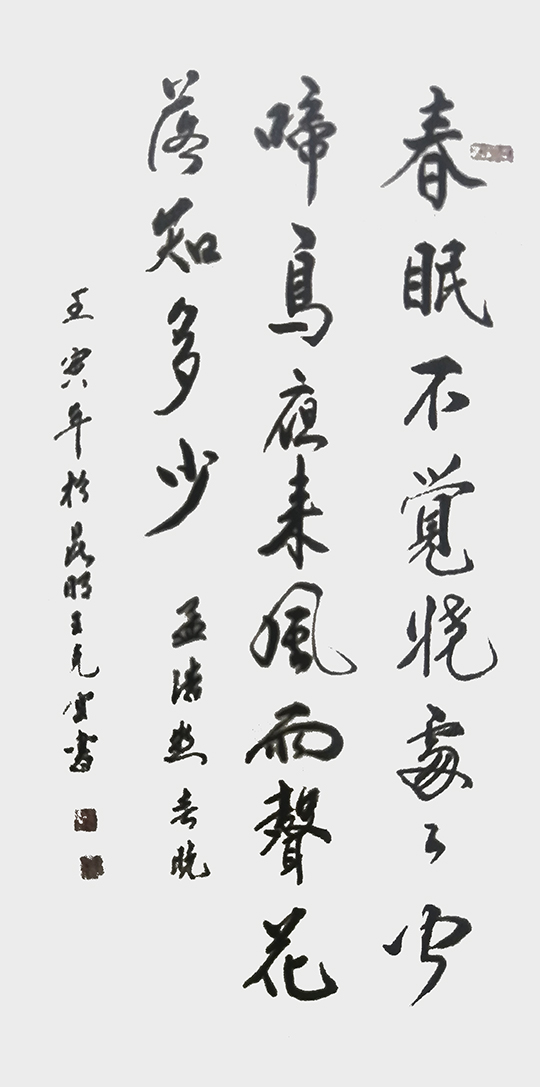 春眠不覺晓處々闻
啼鳥夜来風雨聲花
落知多少 孟浩然春晓
壬寅年於昆明王克書